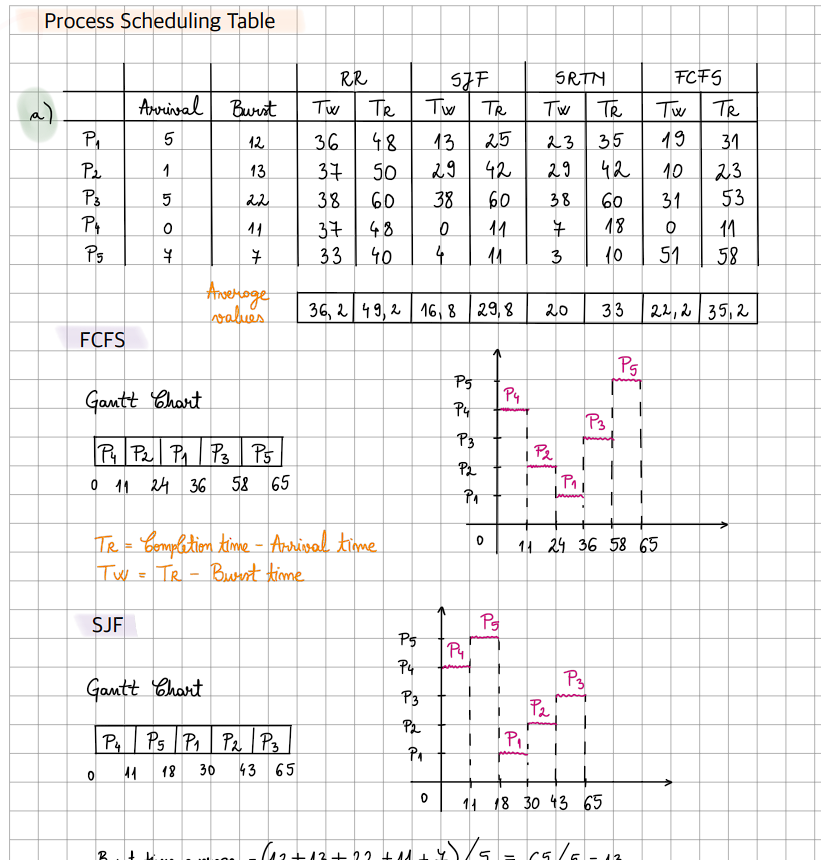 Process Scheduling Table
RR SJF SRTN FCFS
a) Arrival Burst TW TR TW TR TW TR TW TR
P1 5 12 36 48 13 25 23 35 19 31
P2 1 13 37 50 29 42 29 42 10 23
P3 5 22 38 60 38 60 38 60 31 53
P4 0 11 37 48 0 11 7 18 0 11
P5 7 7 33 40 4 11 3 10 51 58
Average
values 36,2 49,2 16,8 29,8 20 33 22,2 35,2
FCFS
Gantt Chart
P4 P2 P1 P3 P5
0 11 24 36 58 65
P5
P4
P3
P2
P1
P4
P2
P1
P3
P5
0 11 24 36 58 65
TR = Completion time - Arrival time
TW = TR - Burst time
SJF
Gantt Chart
P4 P5 P1 P2 P3
0 11 18 30 43 65
P5
P4
P3
P2
P1
P4
P5
P1
P2
P3
0 11 18 30 43 65